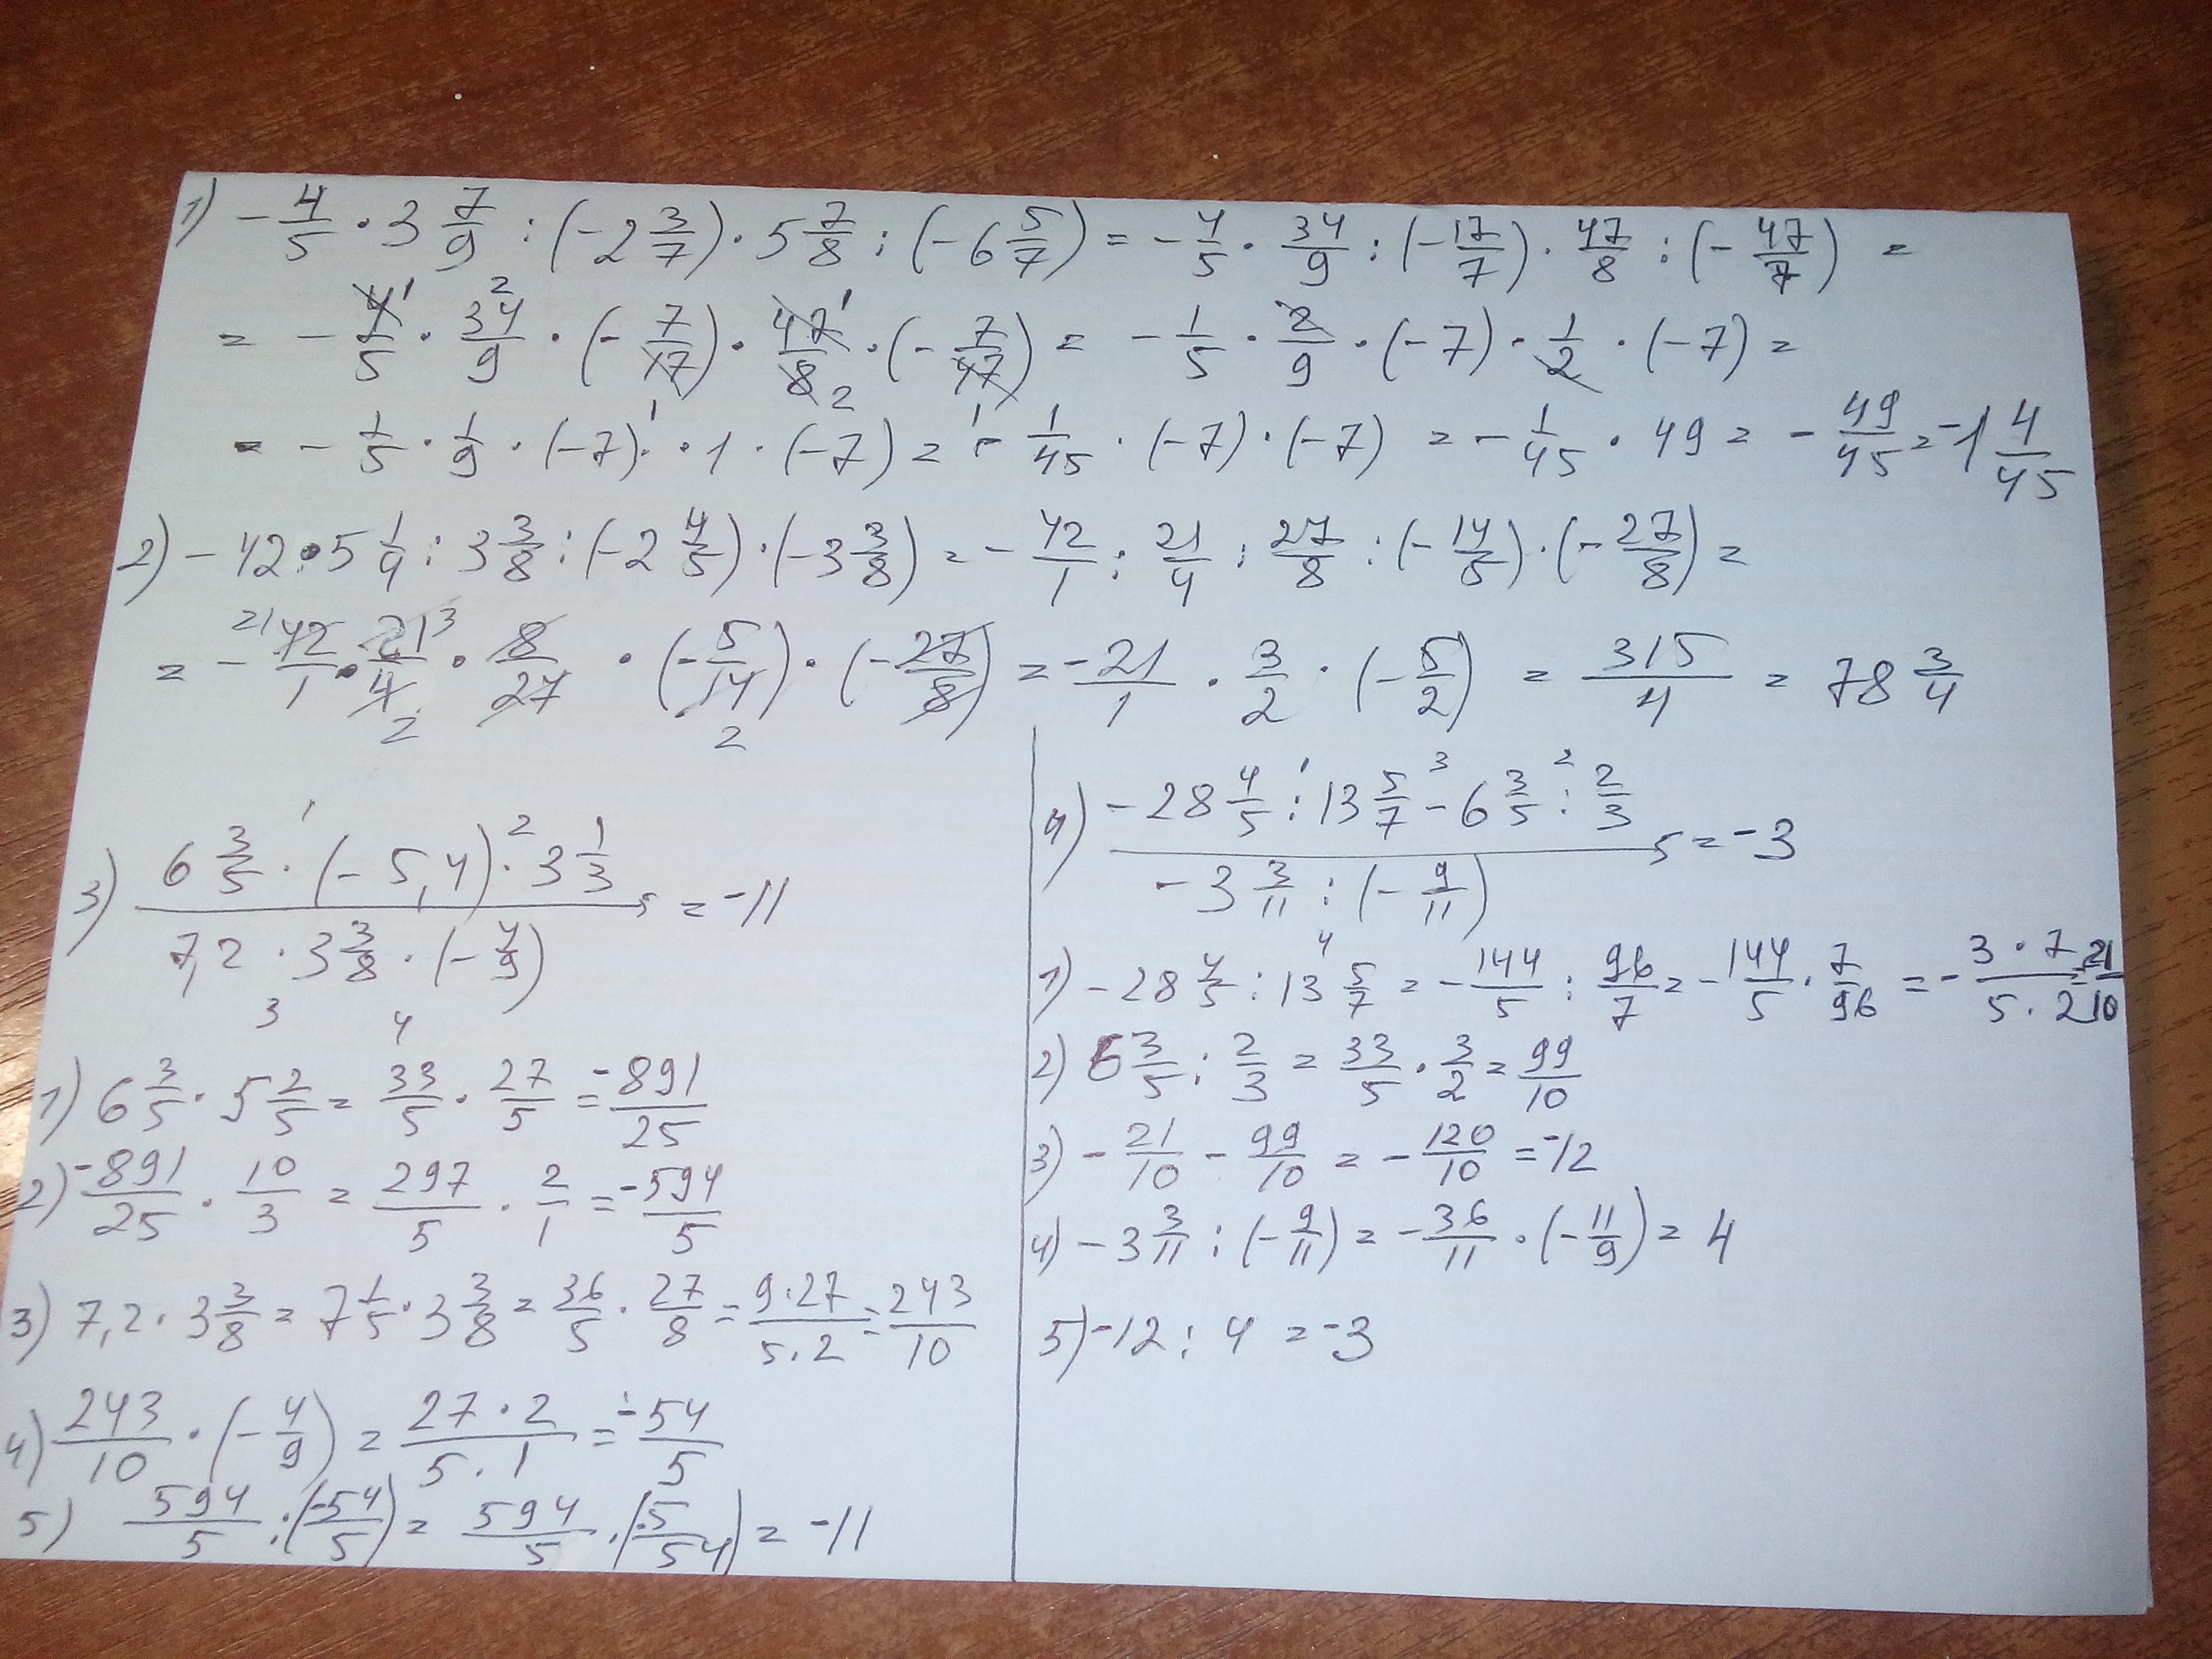 1) -4/5 · 3 7/9 : (-2 3/7) · 5 7/8 : (-6 5/7) = -4/5 · 34/9 : (-17/7) · 47/8 : (-47/7) =
= -4/5 1 · 34/9 2 · (-7/17) · 47/8 1 2 · (-7/47) = -1/5 · 2/9 · (-7) · 1/2 · (-7) =
= -1/5 · 1/9 · (-7) · 1 · (-7) = -1/45 · (-7) · (-7) = -1/45 · 49 = -49/45 = -1 4/45
2) -42 · 5 1/4 : 3 3/8 : (-2 4/5) · (-3 3/8) = -42/1 : 21/4 : 27/8 : (-14/5) · (-27/8) =
= - 21 42/1 · 21/4 3 2 · 8/27 · (-5/14) 2 · (-27/8) = -21/1 · 3/2 · (-5/2) = 315/4 = 78 3/4
3) 6 3/5 ·1 (-5,4) ·2 3 1/3
7,2 · 3 3/8 · (-4/9) 5 = -11
3 4
1) 6 3/5 · 5 2/5 = 33/5 · 27/5 = -891/25
2) -891/25 · 10/3 = 297/5 · 2/1 = -594/5
3) 7,2 · 3 3/8 = 7 1/5 · 3 3/8 = 36/5 · 27/8 = 9·27/5·2 = 243/10
4) 243/10 · (-4/9) = 27·2/5·1 = -54/5
5) 594/5 : (-54/5) = 594/5 · (-5/54) = -11
4) -28 4/5 :1 13 5/7 -3 6 3/5 :2 2/3
-3 3/11 :4 (-9/11) 5 = -3
1) -28 4/5 : 13 5/7 = -144/5 : 96/7 = -144/5 · 7/96 = -3·7/5·2 = 21/10
2) 6 3/5 : 2/3 = 33/5 · 3/2 = 99/10
3) -21/10 - 99/10 = -120/10 = -12
4) -3 3/11 : (-9/11) = -36/11 · (-11/9) = 4
5) -12 : 4 = -3